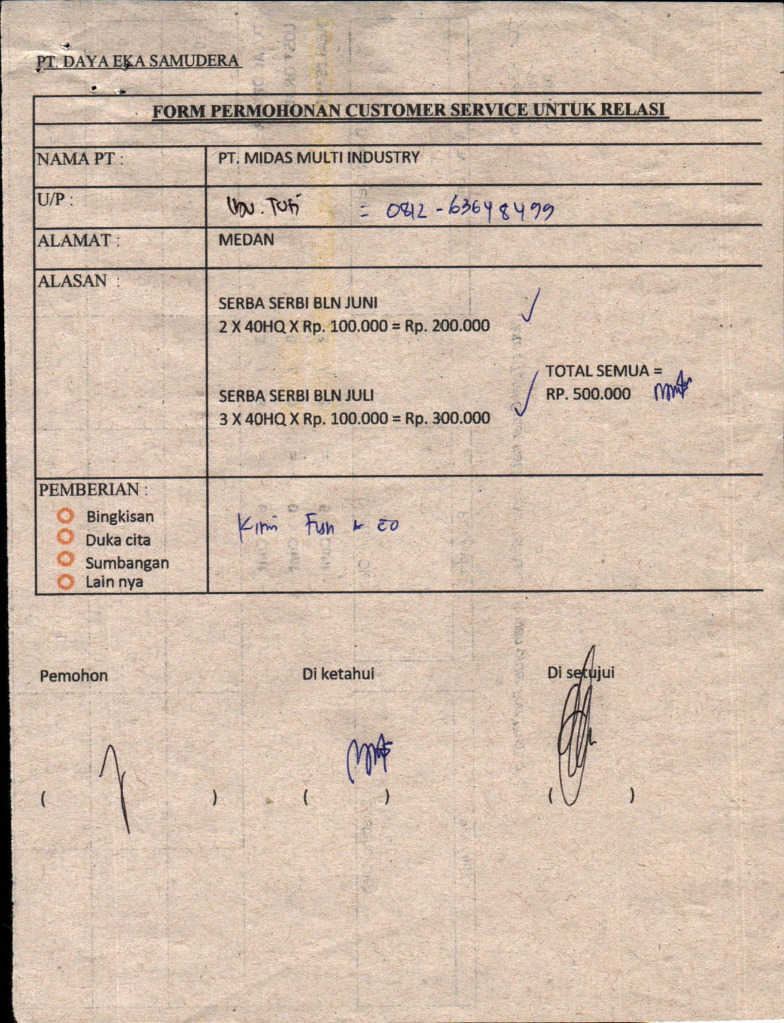 PT. DAYA EKA SAMUDERA
FORM PERMOHONAN CUSTOMER SERVICE UNTUK RELASI
NAMA PT : PT. MIDAS MULTI INDUSTRY
U/P : = 0812-63648499
ALAMAT : MEDAN
ALASAN :
SERBA SERBI BLN JUNI
2 X 40HQ X Rp. 100.000 = Rp. 200.000
TOTAL SEMUA =
RP. 500.000
SERBA SERBI BLN JULI
3 X 40HQ X Rp. 100.000 = Rp. 300.000
PEMBERIAN :
Bingkisan
Duka cita
Sumbangan
Lain nya
Kirim
Pemohon Di ketahui Di setujui
( ) ( ) ( )